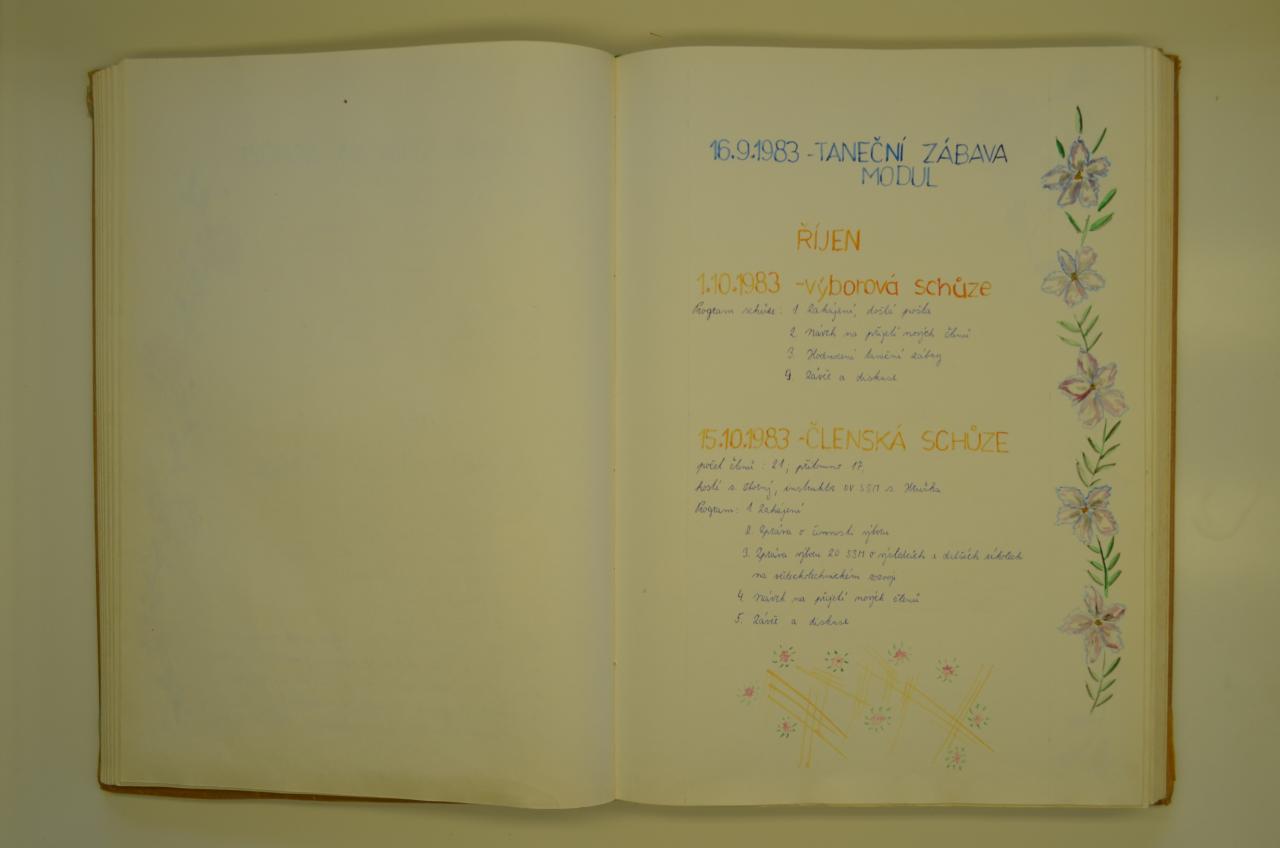 16.9.1983 - TANEČNÍ ZÁBAVA
MODUL
ŘÍJEN
1.10.1983 - výborová schůze
Program schůze: 1. Zahájení, došlá pošta
2. Návrh na přijetí nových členů
3. Hodnocení taneční zábavy
4. Závěr a diskuse
15.10.1983 - ČLENSKÁ SCHŮZE
počet členů : 21, přítomno 17,
hosté s. , instruktor OV SSM s. Hruška
Program: 1. Zahájení
2. Zpráva o činnosti výboru
3. Zpráva výboru ZO SSM o výsledcích a dalších úkolech
na vědeckotechnickém rozvoji
4. Návrh na přijetí nových členů
5. Závěr a diskuse